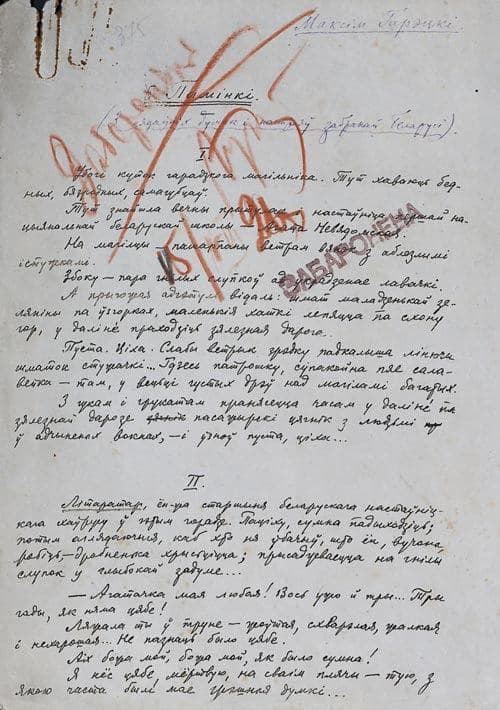 Максім Гарэцкі.
Памінкі.
забранай Беларусі).
I.
Убогі куток гарадзкога магільніка. Тут хаваюць бед-
ных, бязродных, самагубцаў.
Тут знайшла вечны настаўніца першай на-
цыянальнай беларускай школы — Агата Невядомская.
На магілцы — пашарпаны ветрам вянок з аблезлымі
істужкамі.
Збоку — пара гнілых слупкоў ад украдзенае лавачкі.
А прыгожая адгэтуль відаль: шмат маладзенькай зе-
ляніны па ўзгорках, маленькія хаткі лепяцца па схону
гор, у далінe праходзіць зялезная дарога.
Пуста. Ціха. Слабы ветрык зрэдку падкалыша лінючы
шматок стужачкі... Гдзесь патрошку, супакойна пяе сала-
вейка — там, у вецьці густых дрэў над магіламі багатых.
З шумам і грукатам пранясецца часам у даліне па
зялезнай дарозе пасажырскі цягнік з людзьмі
ў адчыненых вокнах, — і ўзноў пуста, ціха...
II.
Літаратар, ён-жа старшыня беларускага настаўніц-
кага хаўрусу ў гэтым горадзе. Паціху, сумна падыходзіць;
потым аглядаючыся, каб хто ня ўбачыў, што ён, вучоны,
робіць — дробненька хрысьціцца; прысаджваецца на гнілы
слупок у глыбокай задуме...
— Агатачка мая любая! Вось ужо й тры... Тры
гады, як няма цябе!
Ляжала ты ў труне — жоўтая, схварэлая, жалкая
і нехарошая... Не пазнаць было цябе.
Ах божа мой, божа мой, як было сумна!
Я нёс цябе, мёртвую, на сваім плячы — тую, з
якою часта былі мае грэшныя думкі...
Забаронены
ЗАБАРОНЕНА